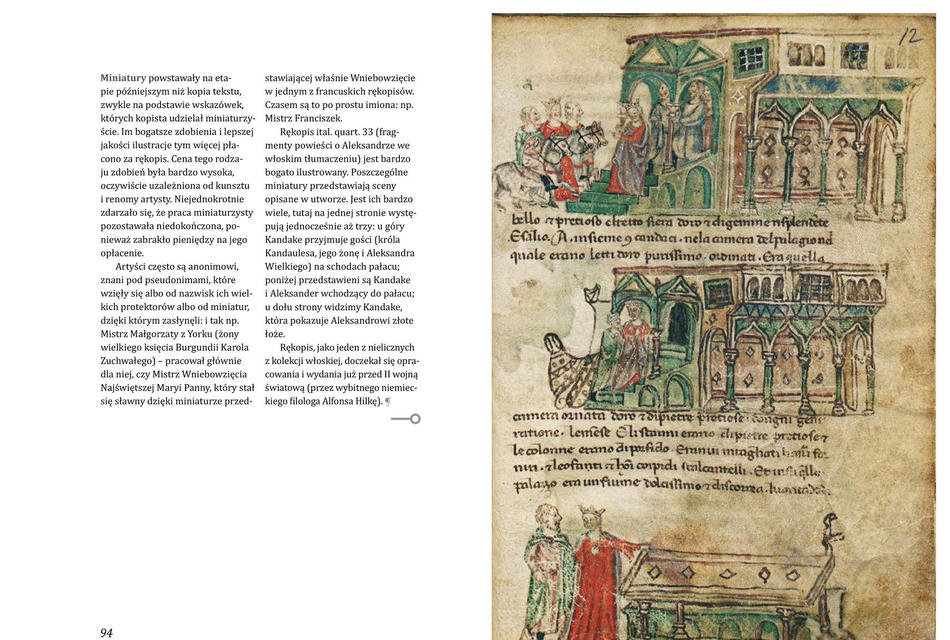 Miniatury powstawały na eta-
pie późniejszym niż kopia tekstu,
zwykle na podstawie wskazówek,
których kopista udzielał miniaturzy-
ście. Im bogatsze zdobienia i lepszej
jakości ilustracje tym więcej pła-
cono za rękopis. Cena tego rodza-
ju zdobień była bardzo wysoka,
oczywiście uzależniona od kunsztu
i renomy artysty. Niejednokrotnie
zdarzało się, że praca miniaturzysty
pozostawała niedokończona, po-
nieważ zabrakło pieniędzy na jego
opłacenie.
Artyści często są anonimowi,
znani pod pseudonimami, które
wzięły się albo od nazwisk ich wiel-
kich protektorów albo od miniatur,
dzięki którym zasłynęli: i tak np.
Mistrz Małgorzaty z Yorku (żony
wielkiego księcia Burgundii Karola
Zuchwałego) – pracował głównie
dla niej, czy Mistrz Wniebowzięcia
Najświętszej Maryi Panny, który stał
się sławny dzięki miniaturze przed-
stawiającej właśnie Wniebowzięcie
w jednym z francuskich rękopisów.
Czasem są to po prostu imiona: np.
Mistrz Franciszek.
Rękopis ital. quart. 33 (frag-
menty powieści o Aleksandrze we
włoskim tłumaczeniu) jest bardzo
bogato ilustrowany. Poszczególne
miniatury przedstawiają sceny
opisane w utworze. Jest ich bardzo
wiele, tutaj na jednej stronie wystę-
pują jednocześnie aż trzy: u góry
Kandake przyjmuje gości (króla
Kandaulesa, jego żonę i Aleksandra
Wielkiego) na schodach pałacu;
poniżej przedstawieni są Kandake
i Aleksander wchodzący do pałacu;
u dołu strony widzimy Kandake,
która pokazuje Aleksandrowi złote
łoże.
Rękopis, jako jeden z nielicznych
z kolekcji włoskiej, doczekał się opra-
cowania i wydania już przed II wojną
światową (przez wybitnego niemiec-
kiego filologa Alfonsa Hilkę). ¶
94
12
bello
insieme camera
quale erano letti purissimo ordinati
camera ornata
ratione
le colonne erano
palazo era un fiume